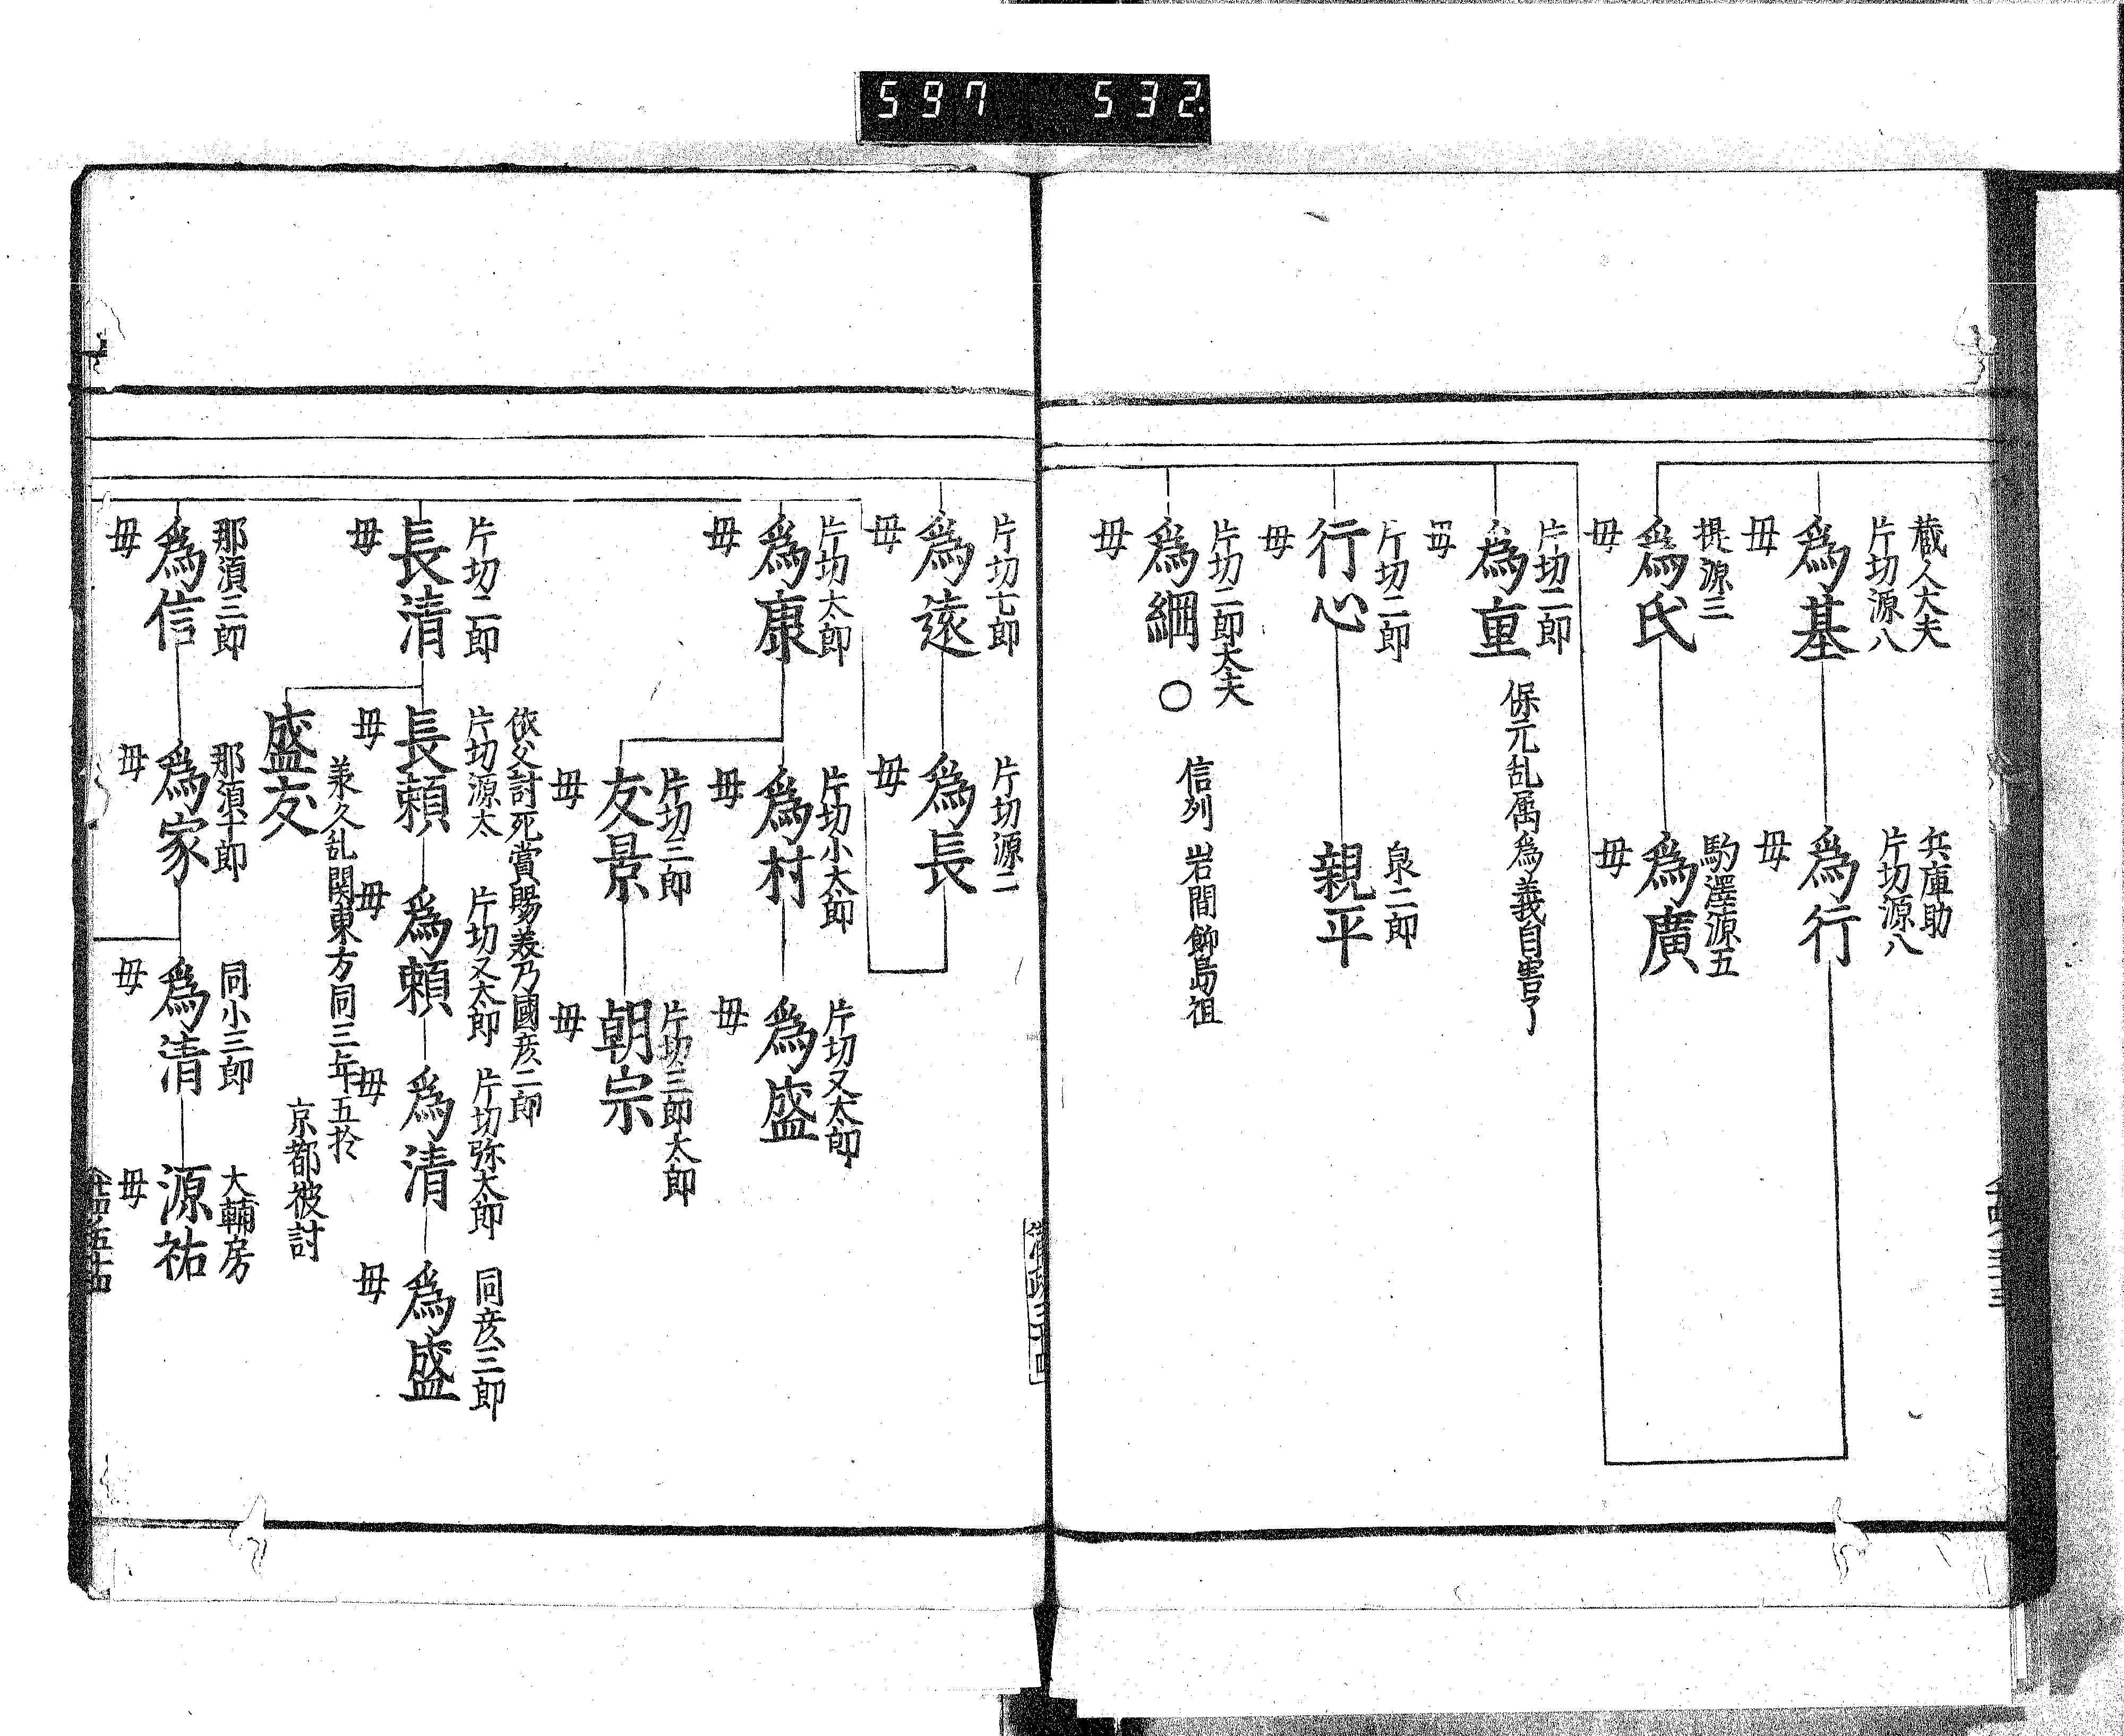 597 532
蔵人大夫
片切源八
為基
毋
兵庫助
片切源八
為行
毋
源三
為氏
毋
駒澤源五
為廣
毋
片切二郎
為重
毋
保元乱属為義自害了
片切二郎
行心
毋
泉二郎
親平
片切二郎大夫
為綱
毋
○
信列 岩間飾島祖
片切七郎
為遠
毋
片切源二
為長
毋
片切太郎
為康
毋
片切小太郎
為村
毋
片切又太郎
為盛
毋
片切三郎
友景
毋
片切三郎太郎
朝宗
毋
片切二郎
長清
毋
依父討死賞賜美乃國彦二郎
片切源太
長頼
毋
片切又太郎
為頼
毋
片切弥太郎
為清
毋
同彦三郎
為盛
毋
盛友
承久乱関東方同三年五於
京都被討
那須三郎
為信
毋
那須十郎
為家
毋
同小三郎
為清
毋
大輔房
源祐
毋